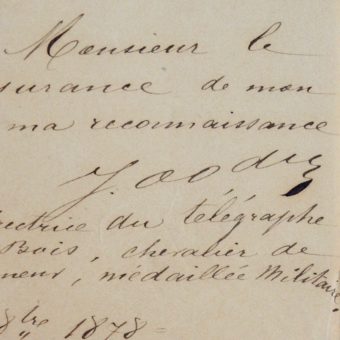 Monsieur le
surance de mon
ma reconnaissance
J. Dodu
ectrice du télégraphe
Bois, chevalier de
neur, médaillée Militaire.
8bre 1878=